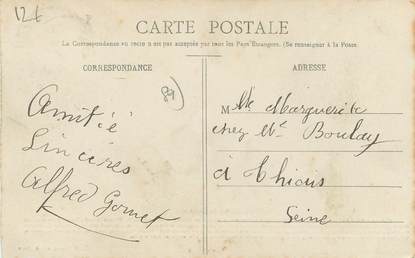 12f
CARTE POSTALE
La Correspondance au recto n'est pas acceptée par tous les Pays Etrangers. (Se renseigner à la Poste
CORRESPONDANCE
ADRESSE
Amitié
Sincères
Alfred
M lle Marguerite
chez Mr Boulay
à Thiais
Seine